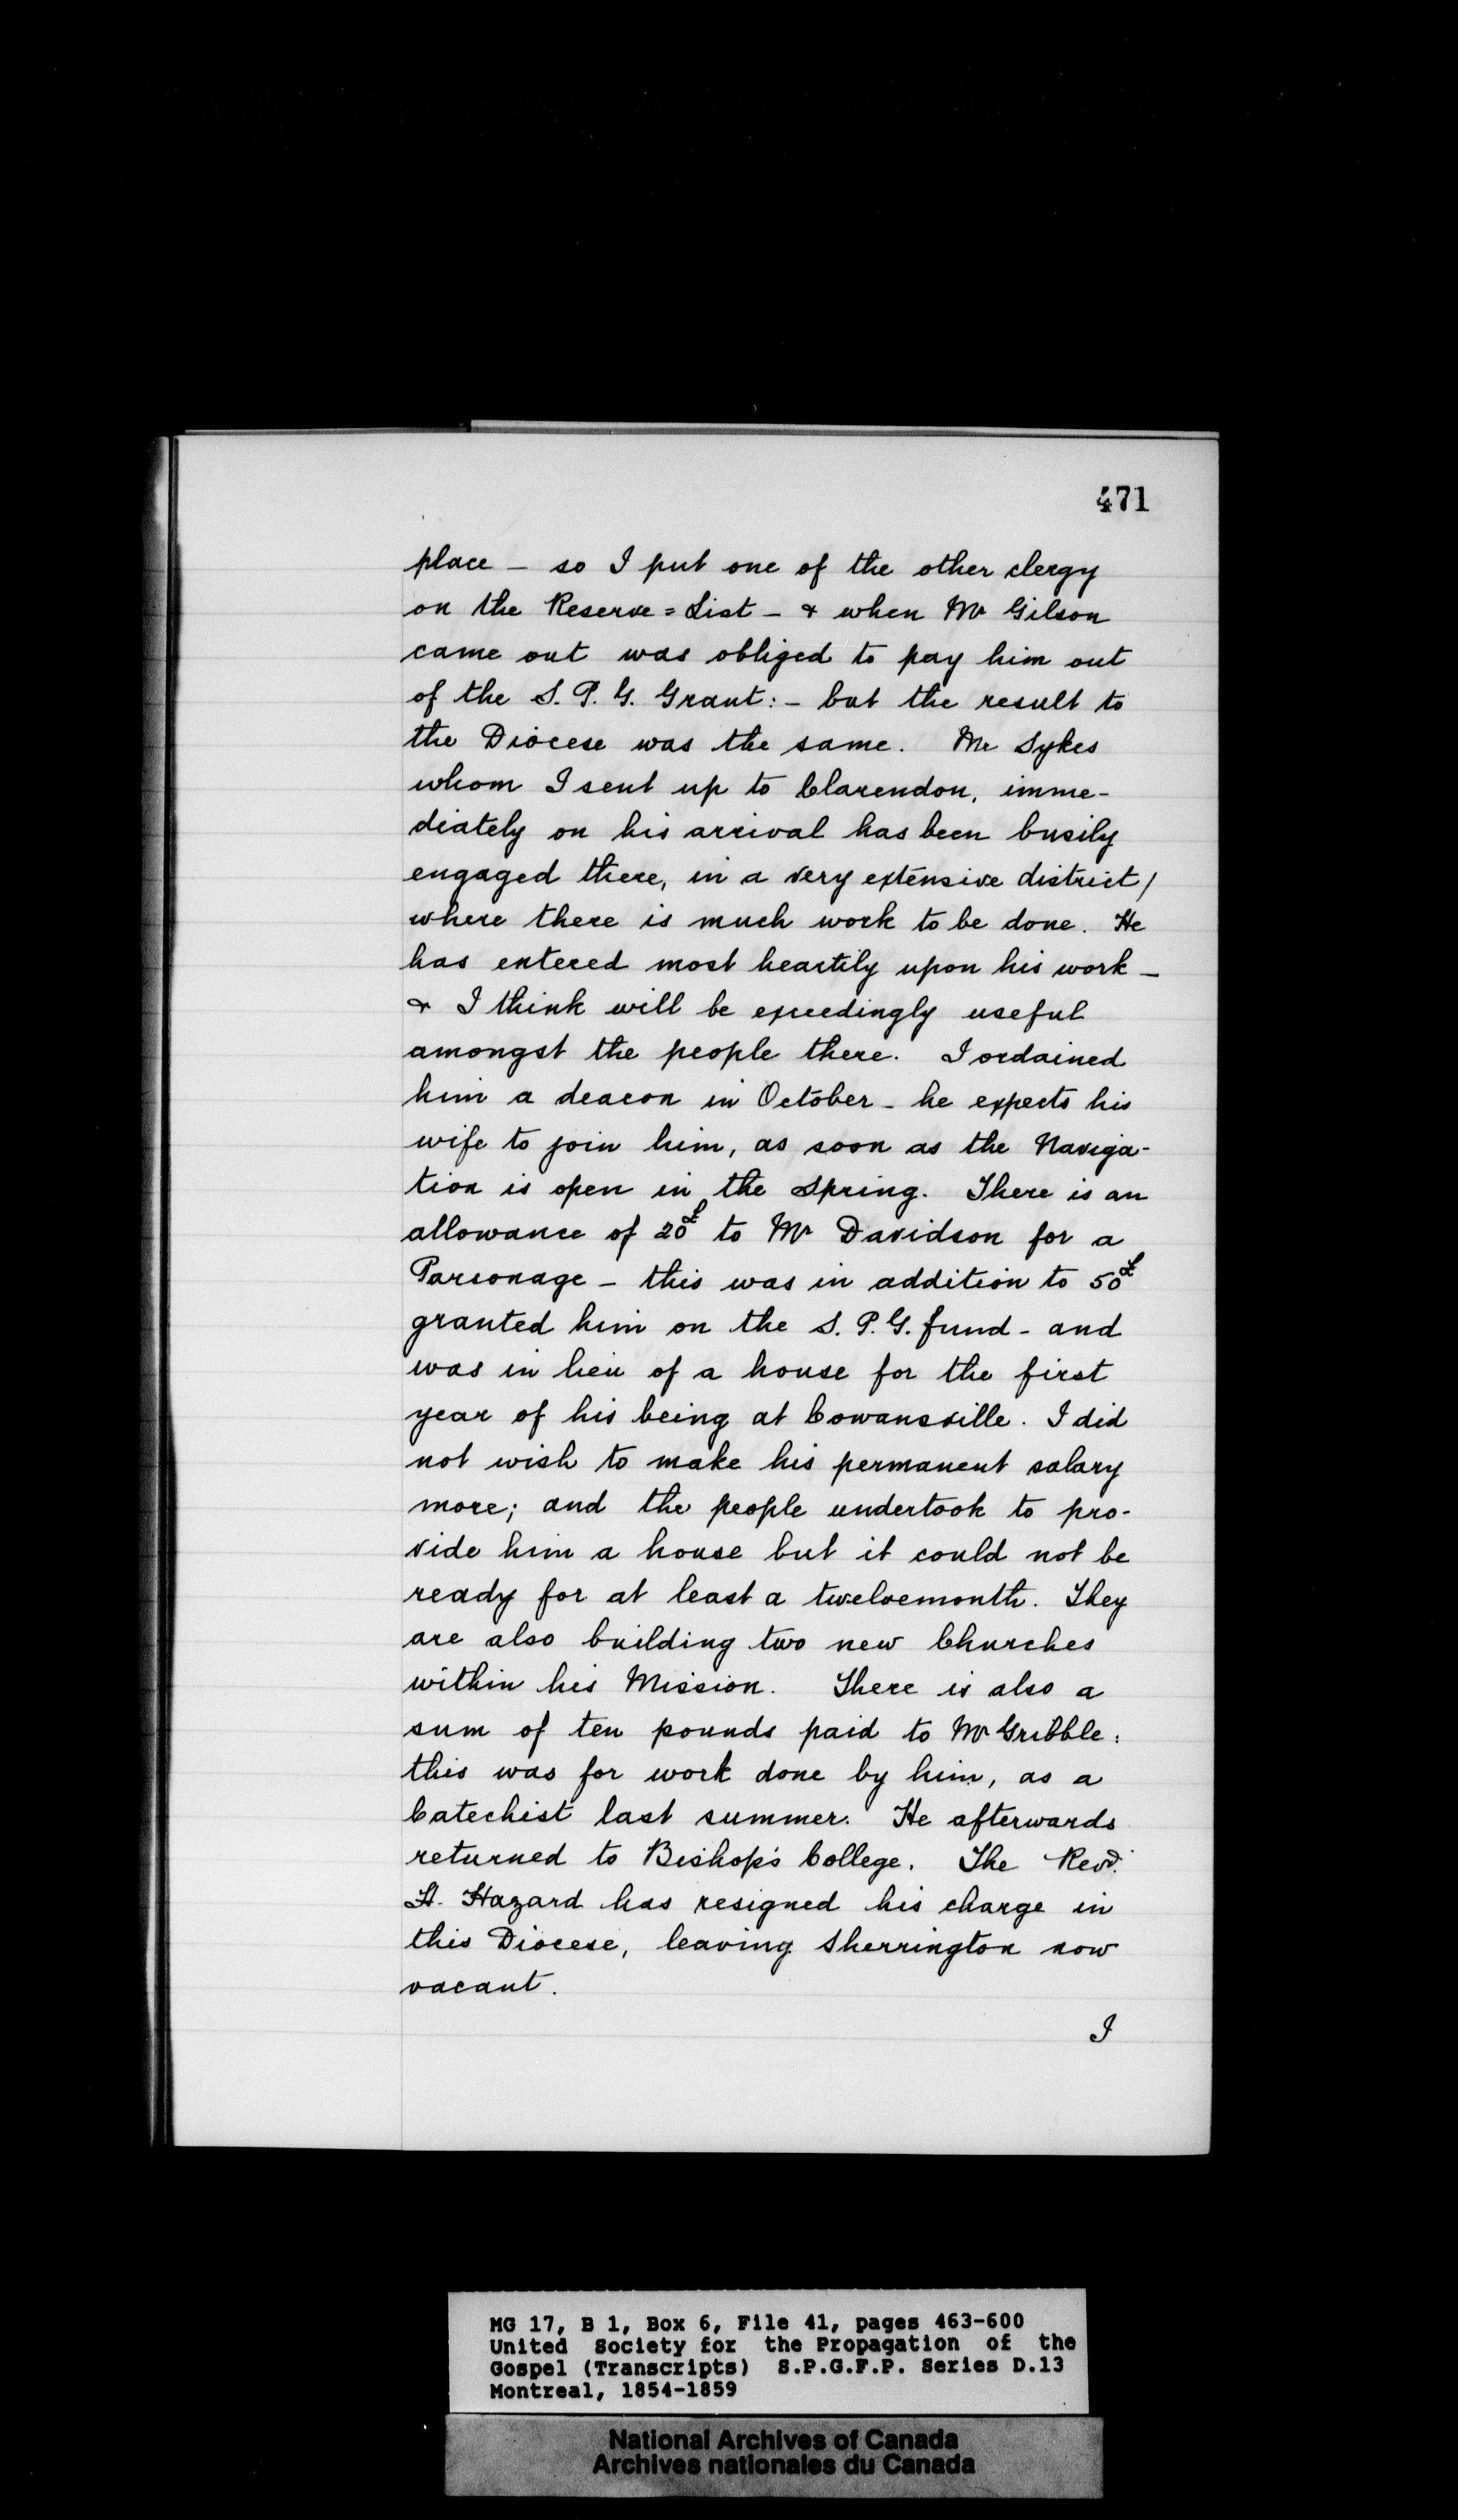 471
place – so I put one of the other clergy
on the Reserve=List – & when Mr Gilson
came out was obliged to pay him out
of the S. P. G. Grant: – but the result to
the Diocese was the same. Mr Sykes
whom I sent up to Clarendon, imme-
diately on his arrival has been busily
engaged there, in a very extensive district,
where there is much work to be done. He
has entered most heartily upon his work –
& I think will be exceedingly useful
amongst the people there. I ordained
him a deacon in October – he expects his
wife to join him, as soon as the Naviga-
tion is open in the Spring. There is an
allowance of 20£ to Mr Davidson for a
Parsonage – this was in addition to 50£
granted him on the S. P. G. fund – and
was in lieu of a house for the first
year of his being at Cowansville. I did
not wish to make his permanent salary
more; and the people undertook to pro-
vide him a house but it could not be
ready for at least a twelvemonth. They
are also building two new Churches
within his Mission. There is also a
sum of ten pounds paid to Mr Gribble:
this was for work done by him, as a
Catechist last summer. He afterwards
returned to Bishop's College. The Revd.
H. Hazard has resigned his charge in
this Diocese, leaving Sherrington now
vacant.
I
MG 17, B 1, Box 6, File 41, pages 463-600
United Society for the Propagation of the
Gospel (Transcripts) S.P.G.F.P. Series D.13
Montreal, 1854-1859
National Archives of Canada
Archives nationales du Canada